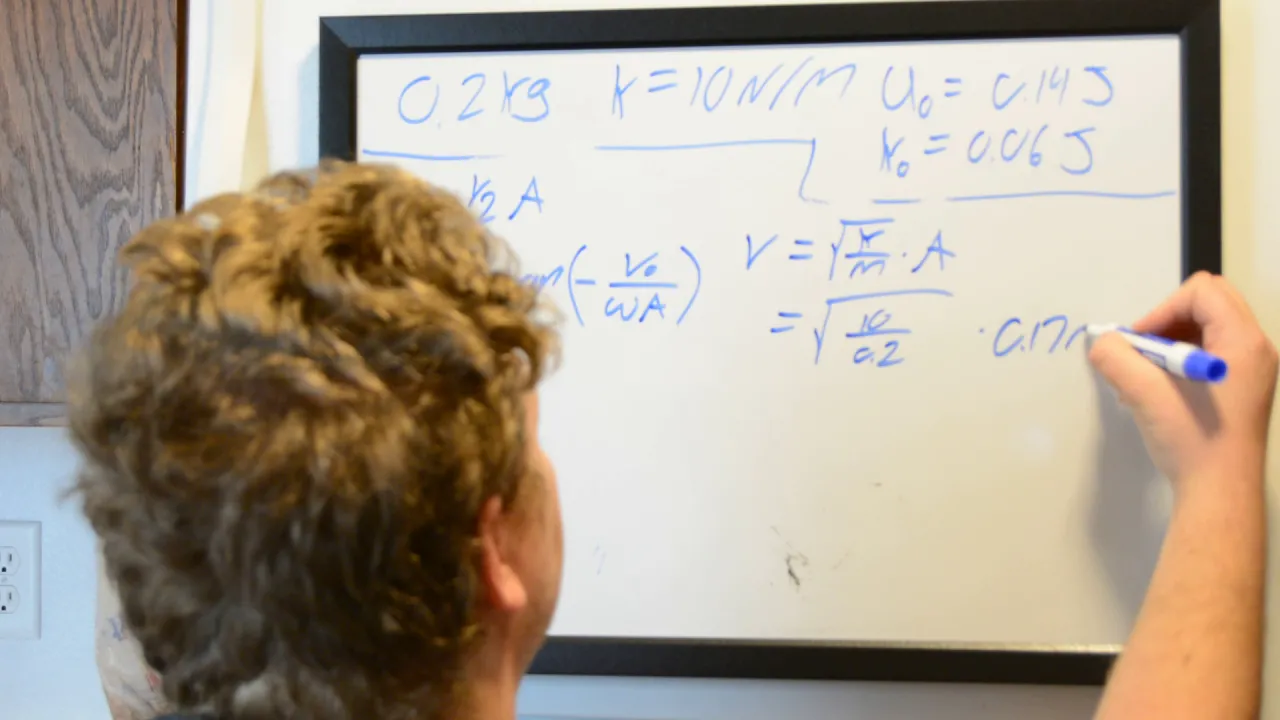 0.2 kg k = 10 N/M U₀ = 0.14 J
K₀ = 0.06 J
½ A
(- V₀/ωA) V = √(k/m) · A
= √(10/0.2) · 0.17